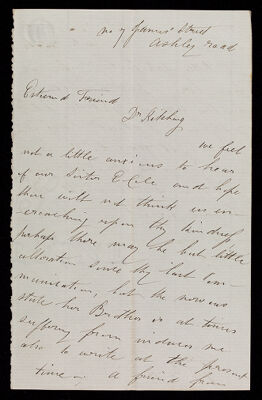 no 7 James' Street
Ashley Road
Esteemed Friend
Dr Kitching
we feel
not a little anxious to hear
of our Sister E Cole and hope
thou will not think us en-
croaching upon thy kindness
perhaps there may be but little
alteration since thy last Com-
munication, but the nervous
state her Brother is at times
suffering from induces me
also to write at the present
time. A friend from